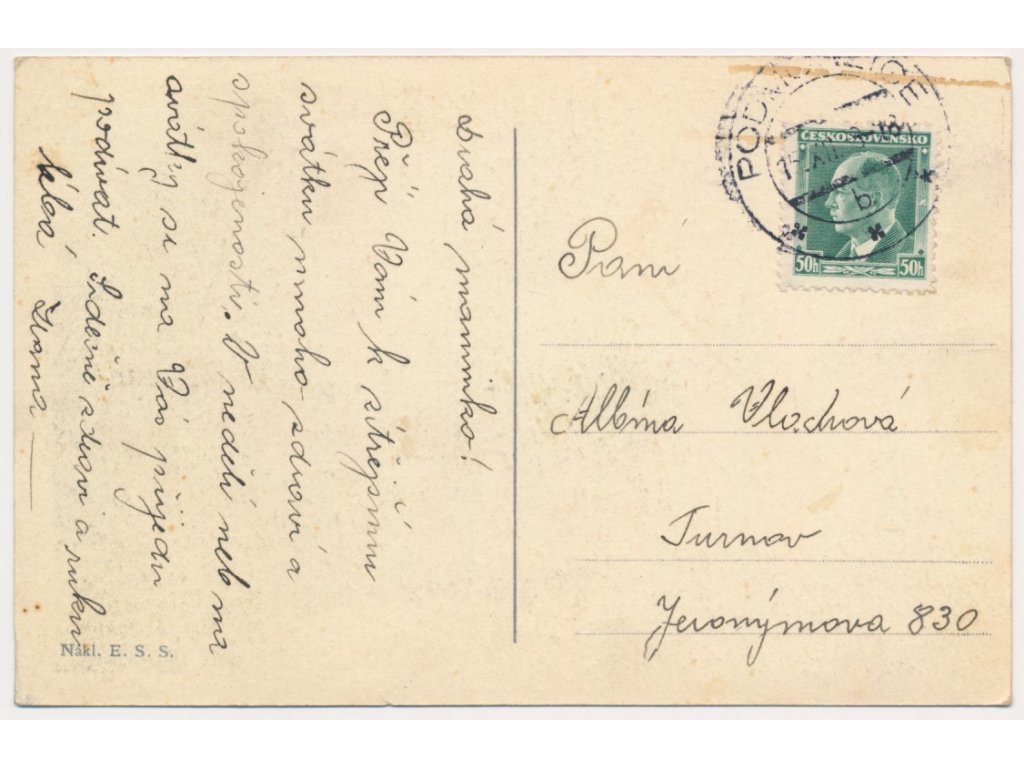 Drahá maminko!
Přeji Vám k zítřejšímu
svátku mnoho zdraví a
spokojenosti. V neděli neb na
svátky se na Vás přijedu
podívat. Srdečně zdraví a ruku
líbá Zdena
Nákl. E. S. S.
ČESKOSLOVENSKO
50h 50h
b
Paní
Albína Vlachová
Turnov
Jeronýmova 830